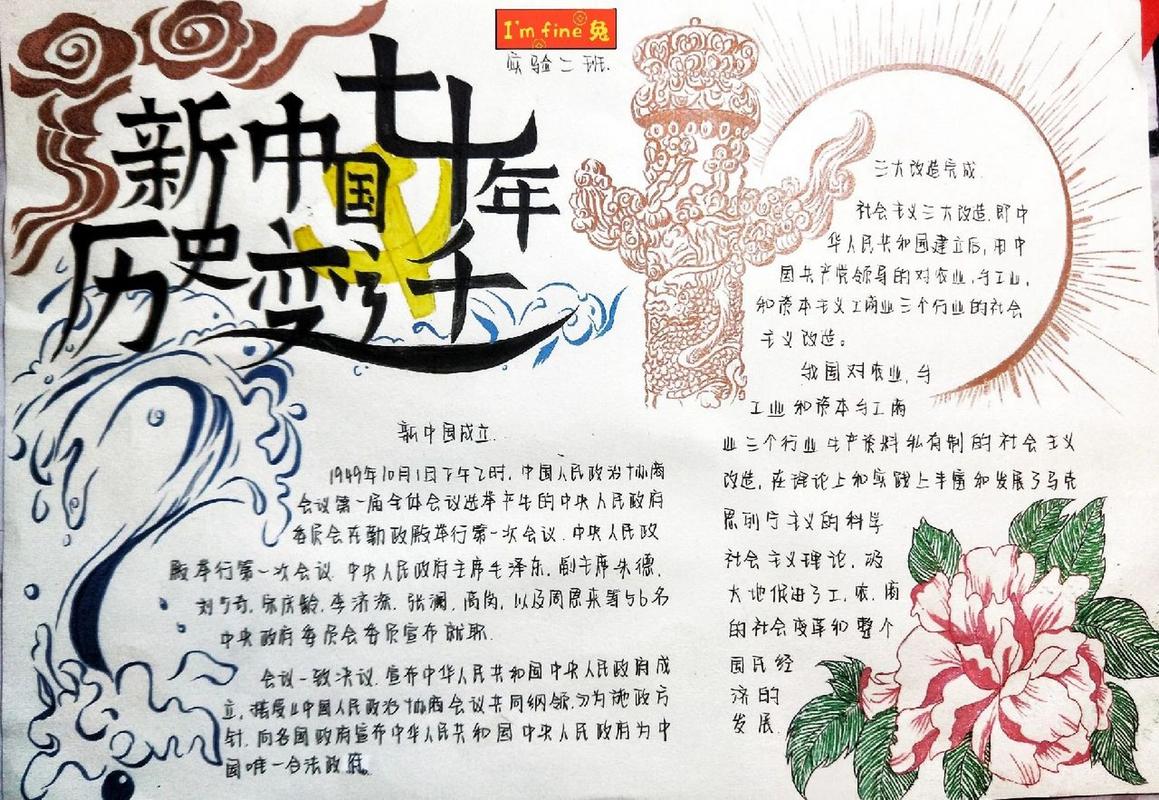 I'm fine 兔
实验二班.
新中国七十年
历史变迁
新中国成立.
1949年10月1日下午2时.中国人民政治协商
会议第一届全体会议选举产生的中央人民政府
委员会在勤政殿举行第一次会议.中央人民政
殿举行第一次会议.中央人民政府主席毛泽东.副主席朱德.
刘少奇.宋庆龄.李济深.张澜.高岗.以及周恩来等56名
中央政府委员会委员宣布就职.
会议一致决议.宣布中华人民共和国中央人民政府成
立,接受《中国人民政治协商会议共同纲领》为施政方
针.向各国政府宣布中华人民共和国中央人民政府为中
国唯一合法政府。
三大改造完成.
社会主义三大改造.即中
华人民共和国建立后,由中
国共产党领导的对农业,手工业,
和资本主义工商业三个行业的社会
主义改造。
我国对农业,手
工业和资本主义工商
业三个行业生产资料私有制的社会主义
改造,在理论上和实践上丰富和发展了马克
思列宁主义的科学
社会主义理论,极
大地促进了工.农.商
的社会变革和整个
国民经
济的
发展.